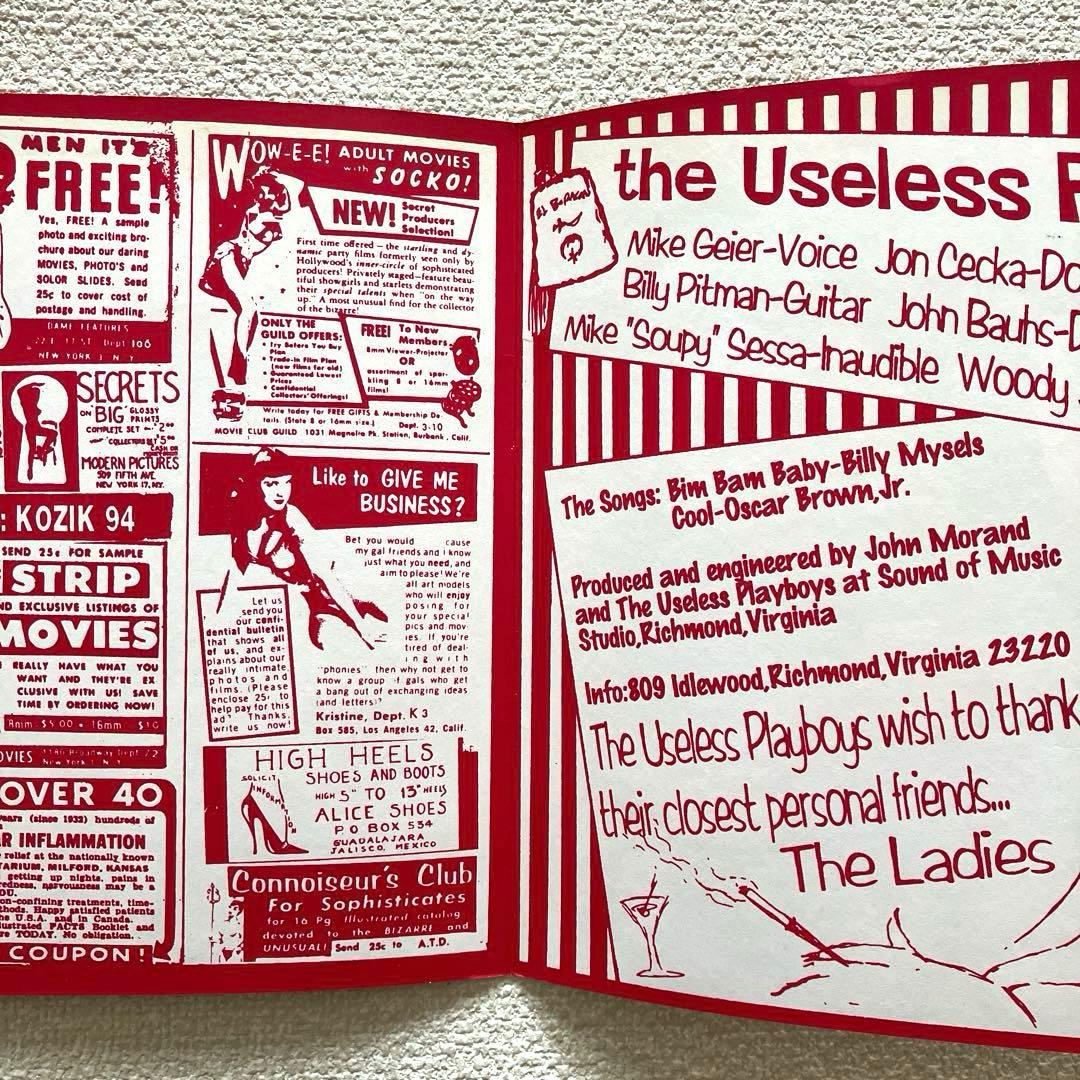 MEN IT'S
FREE!
Yes, FREE! A sample
photo and exciting bro-
chure about our daring
MOVIES, PHOTO'S and
SOLOR SLIDES. Send
25c to cover cost of
postage and handling.
DAME FEATURES
Dept 106
NEW YORK 3 N.Y.
SECRETS
ON "BIG" GLOSSY
PRINTS
COMPLETE SET
MODERN PICTURES
509 FIFTH AVE.
NEW YORK 17, N.Y.
: KOZIK 94
SEND 25c FOR SAMPLE
STRIP
ND EXCLUSIVE LISTINGS OF
MOVIES
REALLY HAVE WHAT YOU
WANT AND THEY'RE EX
CLUSIVE WITH US! SAVE
TIME BY ORDERING NOW!
8mm $5.00 • 16mm $10
OVIES 1186 Broadway Dept 72
New York 1 N.Y.
OVER 40
ears (since 1932) hundreds of
R INFLAMMATION
relief at the nationally known
TARIUM, MILFORD, KANSAS
getting up nights, pains in
redness, nervousness may be a
OU.
on-confining treatments, time-
thods. Happy satisfied patients
he U.S.A. and in Canada.
ustrated FACTS Booklet and
re TODAY. No obligation.
COUPON!
WOW-E-E! ADULT MOVIES
with SOCKO!
NEW! Secret
Producers
Selection!
First time offered – the startling and dy-
namic party films formerly seen only by
Hollywood's inner-circle of sophisticated
producers! Privately staged–feature beau-
tiful showgirls and starlets demonstrating
their special talents when "on the way
up." A most unusual find for the collector
of the bizarre!
ONLY THE
GUILD OFFERS:
• Try Before You Buy
Plan
• Trade-in Film Plan
(new films for old)
• Guaranteed Lowest
Prices
• Confidential
Collectors' Offerings!
FREE! To New
Members
8mm Viewer-Projector
OR
assortment of spar-
kling 8 or 16mm
films!
Write today for FREE GIFTS & Membership De
tails. (State 8 or 16mm size.) Dept. 3-10
MOVIE CLUB GUILD 1031 Magnolia Pk. Station, Burbank, Calif.
Like to GIVE ME
BUSINESS?
Bet you would cause
my gal friends and i know
just what you need, and
aim to please! We're
all art models
who will enjoy
posing for
your special
pics and mov-
ies. If you're
tired of deal-
ing with
"phonies" then why not get to
know a group of gals who get
a bang out of exchanging ideas
(and letters)?
Kristine, Dept. K 3
Box 585, Los Angeles 42, Calif.
Let us
send you
our confi-
dential bulletin
that shows all
of us, and ex-
plains about our
really intimate
photos and
films. (Please
enclose 25c to
help pay for this
ad) Thanks,
write us now!
HIGH HEELS
SOLICIT
INFORMATION
SHOES AND BOOTS
HIGH 5" TO 13" HEELS
ALICE SHOES
P O BOX 534
GUADALAJARA
JALISCO, MEXICO
Connoiseur's Club
For Sophisticates
for 16 Pg. Illustrated catalog
devoted to the BIZARRE and
UNUSUAL! Send 25c to A.T.D.
the Useless P
Mike Geier-Voice Jon Cecka-Do
Billy Pitman-Guitar John Bauhs-D
Mike "Soupy" Sessa-Inaudible Woody
The Songs: Bim Bam Baby-Billy Mysels
Cool-Oscar Brown,Jr.
Produced and engineered by John Morand
and The Useless Playboys at Sound of Music
Studio,Richmond,Virginia
Info:809 Idlewood,Richmond,Virginia 23220
The Useless Playboys wish to thank
their closest personal friends...
The Ladies